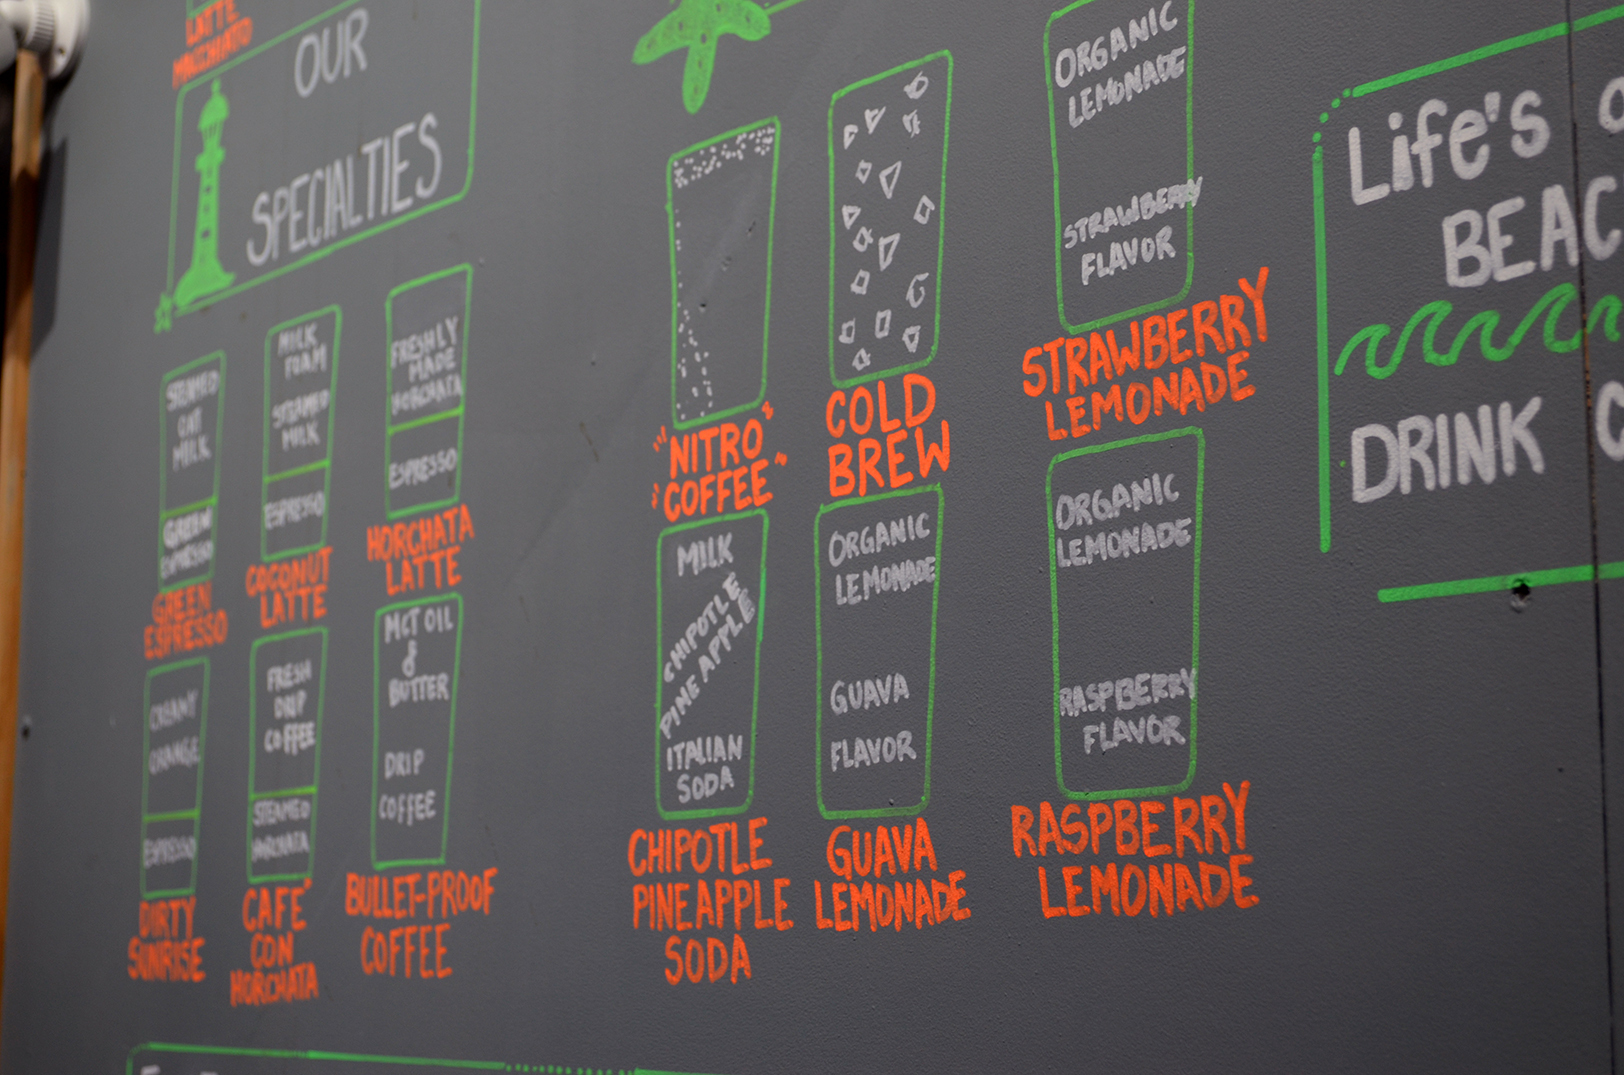 LATTE
MACCHIATO
OUR
SPECIALTIES
STEAMED
OAT
MILK
GREEN
ESPRESSO
GREEN
ESPRESSO
MILK
FOAM
STEAMED
MILK
ESPRESSO
COCONUT
LATTE
FRESHLY
MADE
HORCHATA
ESPRESSO
HORCHATA
LATTE
CREAMY
ORANGE
ESPRESSO
DIRTY
SUNRISE
FRESH
DRIP
COFFEE
STEAMED
HORCHATA
CAFE'
CON
HORCHATA
MCT OIL
&
BUTTER
DRIP
COFFEE
BULLET-PROOF
COFFEE
NITRO
COFFEE
COLD
BREW
ORGANIC
LEMONADE
STRAWBERRY
FLAVOR
STRAWBERRY
LEMONADE
MILK
CHIPOTLE
PINEAPPLE
ITALIAN
SODA
CHIPOTLE
PINEAPPLE
SODA
ORGANIC
LEMONADE
GUAVA
FLAVOR
GUAVA
LEMONADE
ORGANIC
LEMONADE
RASPBERRY
FLAVOR
RASPBERRY
LEMONADE
Life's
BEAC
DRINK